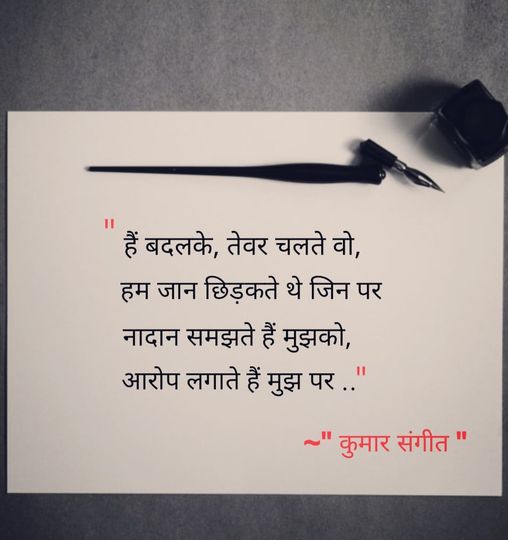 " हैं बदलके, तेवर चलते वो,
हम जान छिड़कते थे जिन पर
नादान समझते हैं मुझको,
आरोप लगाते हैं मुझ पर .."
~" कुमार संगीत "